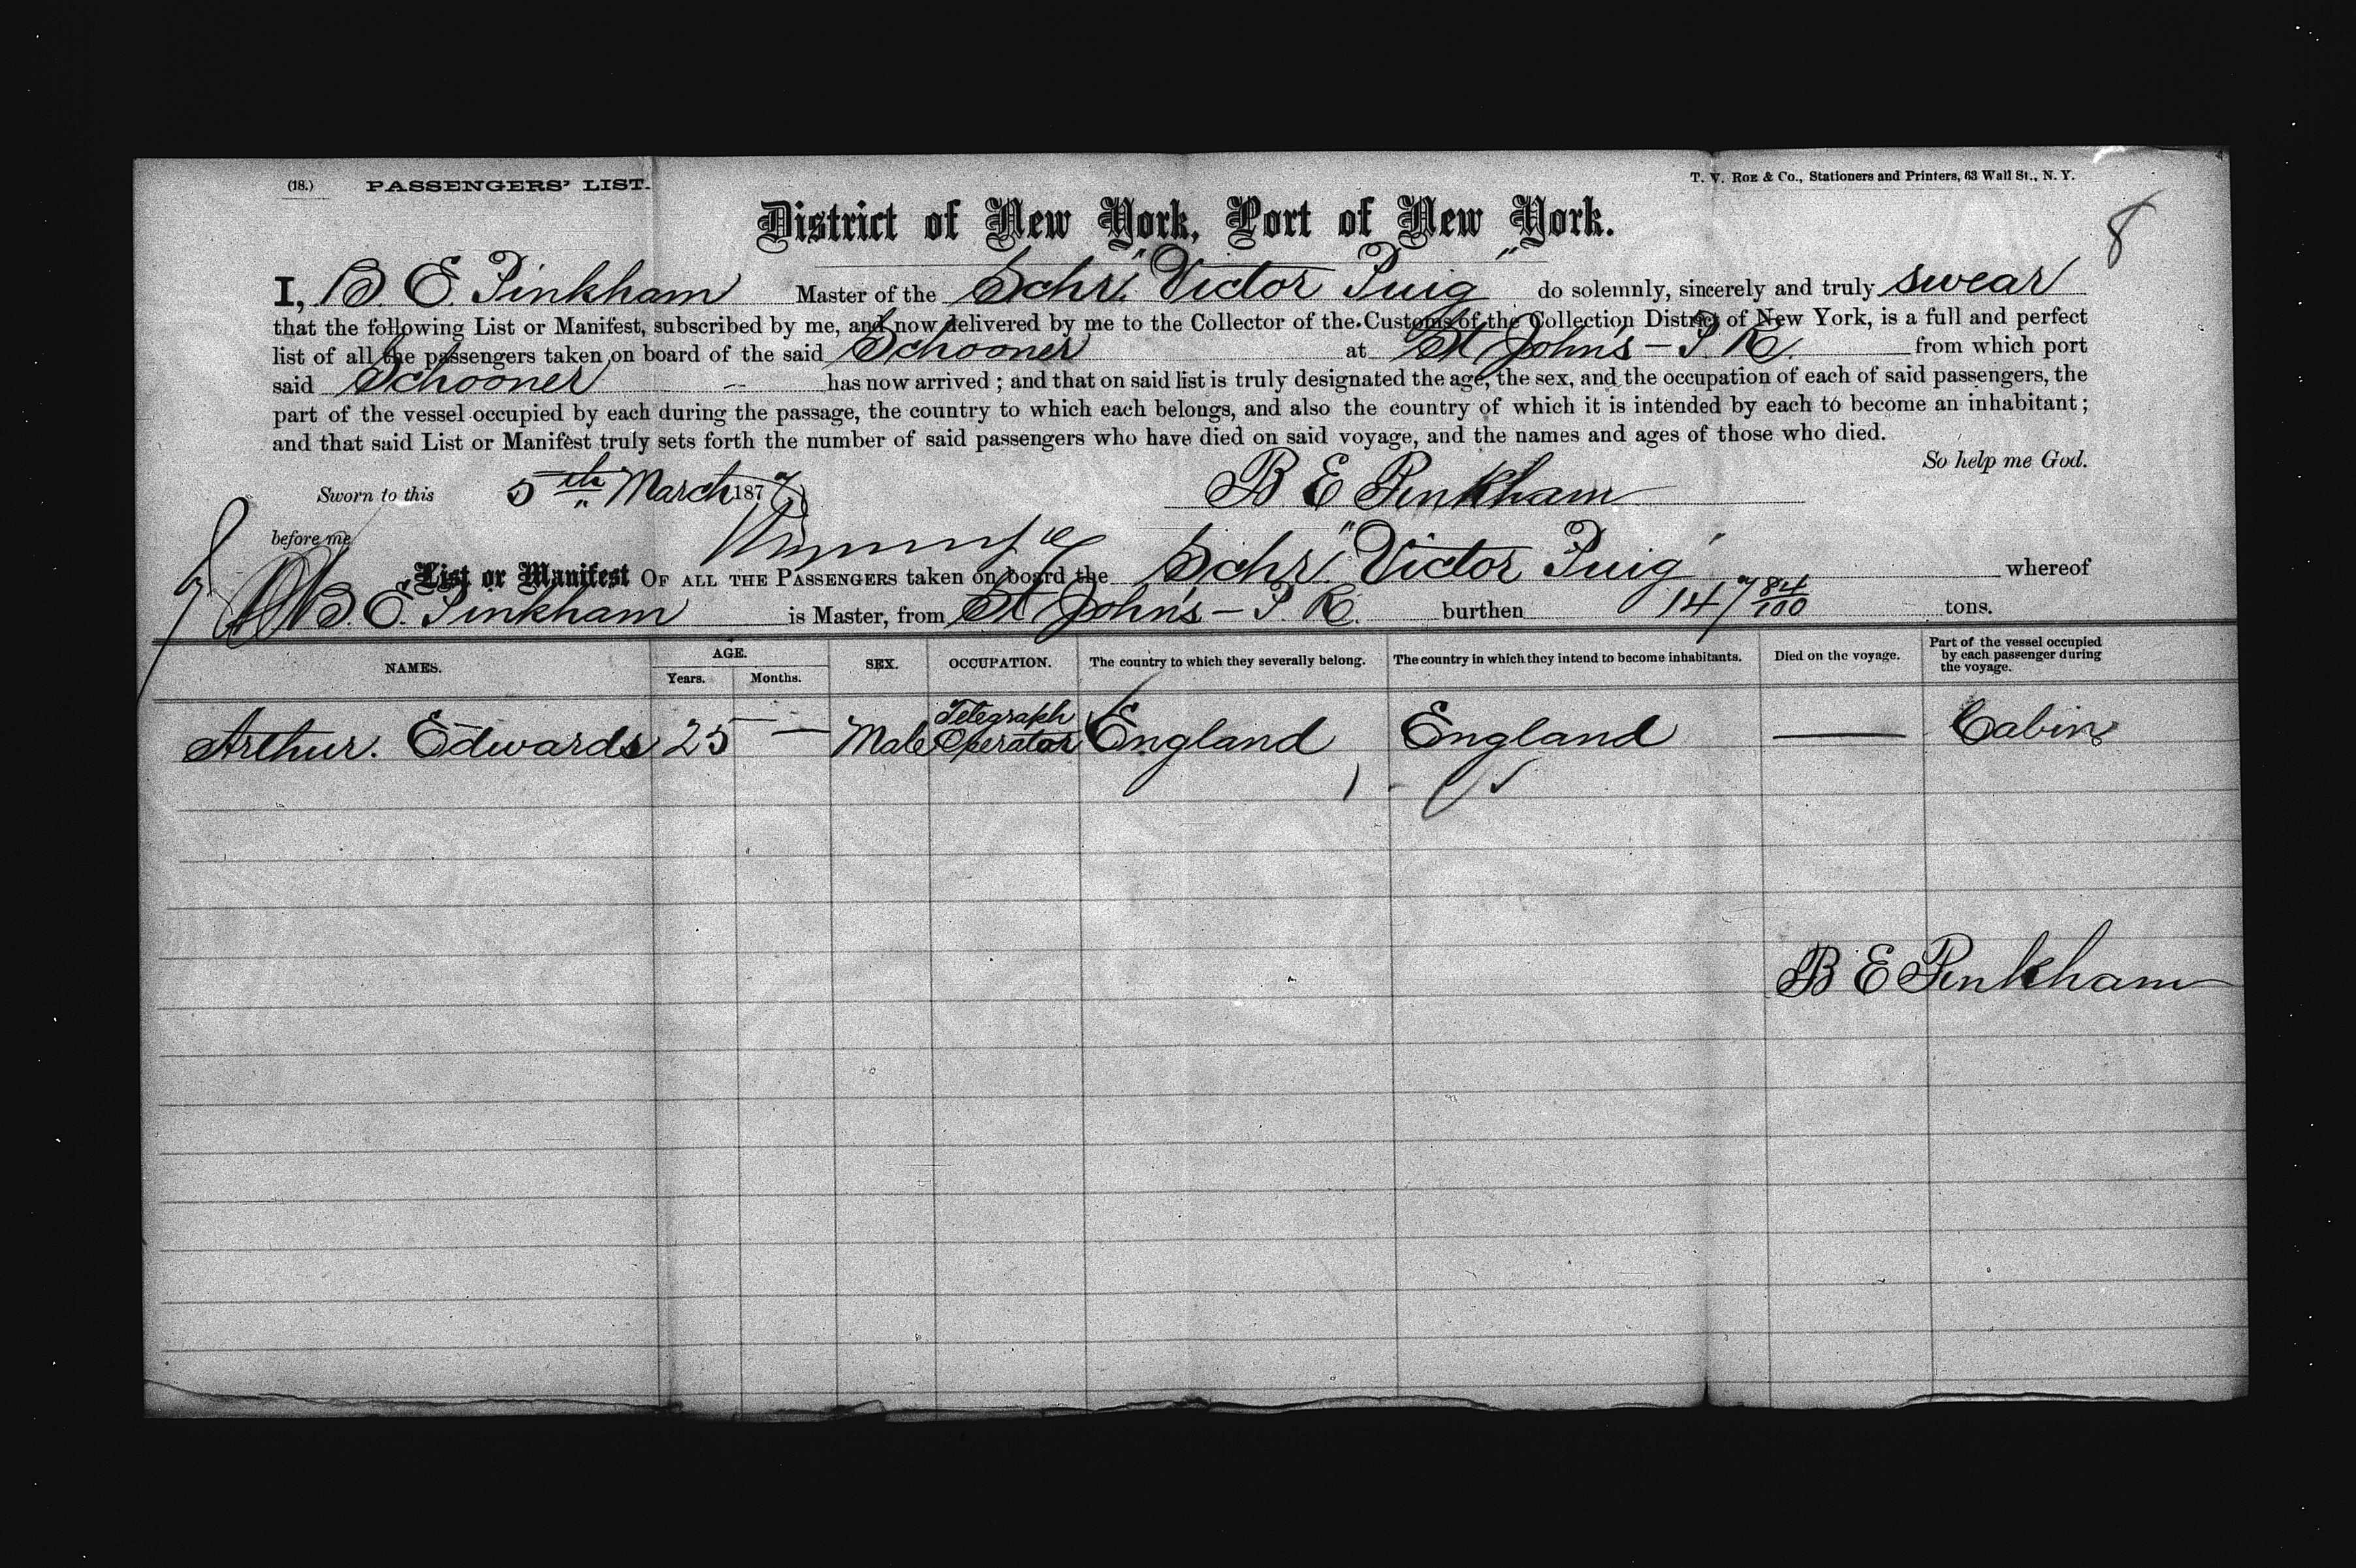 (18.) PASSENGERS' LIST. T. V. ROE & Co., Stationers and Printers, 63 Wall St., N. Y.
8
District of New York, Port of New York.
I, B. E. Pinkham Master of the Schr. "Victor Puig" do solemnly, sincerely and truly swear
that the following List or Manifest, subscribed by me, and now delivered by me to the Collector of the Customs of the Collection District of New York, is a full and perfect
list of all the passengers taken on board of the said Schooner at St John's - P. R. from which port
said Schooner - has now arrived; and that on said list is truly designated the age, the sex, and the occupation of each of said passengers, the
part of the vessel occupied by each during the passage, the country to which each belongs, and also the country of which it is intended by each to become an inhabitant;
and that said List or Manifest truly sets forth the number of said passengers who have died on said voyage, and the names and ages of those who died.
So help me God.
Sworn to this 5th March 1877 B E Pinkham
before me
List or Manifest OF ALL THE PASSENGERS taken on board the Schr. "Victor Puig" whereof
B. E. Pinkham is Master, from St John's - P. R. burthen 147 84/100 tons.
NAMES. AGE. Years. Months. SEX. OCCUPATION. The country to which they severally belong. The country in which they intend to become inhabitants. Died on the voyage. Part of the vessel occupied by each passenger during the voyage.
Arthur. Edwards 25 — Male Telegraph Operator England England — Cabin
B E Pinkham